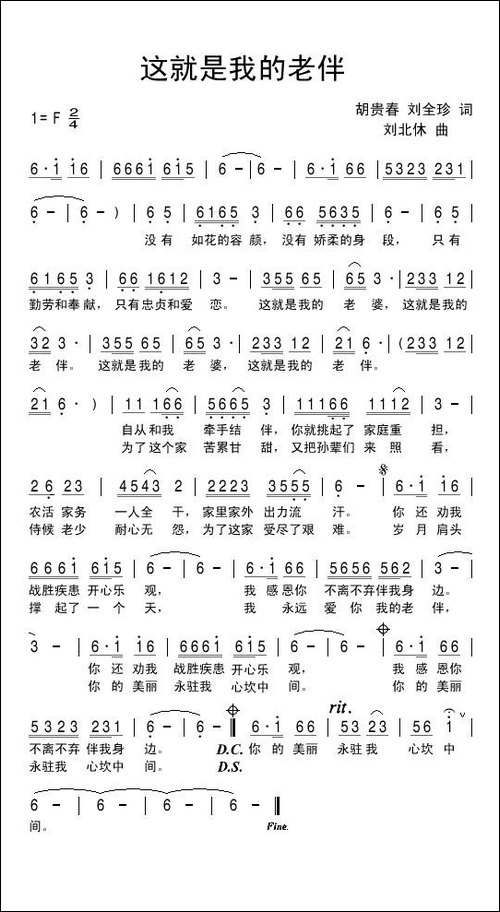 这就是我的老伴
1=F 2/4
胡贵春 刘全珍 词
刘北休 曲
6·i i6 | 6661 615 | 6 - | 6 - | 6·i 66 | 5323 231 |
6 - | 6 - ) | 6 5 | 6165 3 | 66 5635 | 6 - | 6 5 |
没有 如花的容 颜, 没有 娇柔的身 段, 只有
6165 3 | 66 1612 | 3 - | 355 65 | 65 3· | 233 12 |
勤劳和奉献, 只有忠贞和爱 恋。 这就是我的 老 婆, 这就是我的
32 3· | 355 65 | 65 3· | 233 12 | 21 6· | (233 12 |
老 伴。 这就是我的 老 婆, 这就是我的 老 伴。
21 6· ) | 11 166 | 5665 3 | 11166 1112 | 3 - |
自从和我 牵手结 伴, 你就挑起了 家庭重 担,
为了这个家 苦累甘 甜, 又把孙辈们 来 照 看,
26 23 | 4543 2 | 2223 3555 | 6 - | 6·i i6 |
农活 家务 一人全 干, 家里家外 出力流 汗。 你 还 劝我
侍候 老少 耐心无 怨, 为了这家 受尽了艰 难。 岁 月 肩头
6661 615 | 6 - | 6 - | 6·i 66 | 565656 562 | 3 - |
战胜疾患 开心乐 观, 我 感 恩你 不离不弃伴我身 边。
撑 起了 一 个 天, 我 永远 爱 你 我的老 伴,
3 - | 6·i i6 | 6661 615 | 6 - | 6 - | 6·i 66 |
你 还 劝我 战胜疾患 开心乐 观, 我 感 恩你
你 的 美丽 永驻我 心坎中 间。 你 的 美丽
rit.
5323 231 | 6 - | 6 - ‖ 6·i 66 | 53 23 | 56 i ∨ |
不离不弃 伴我身 边。 D.C. 你 的 美丽 永驻 我 心坎 中
永驻我 心坎中 间。 D.S.
6 - | 6 - | 6 - | 6 - ‖
间。 Fine.